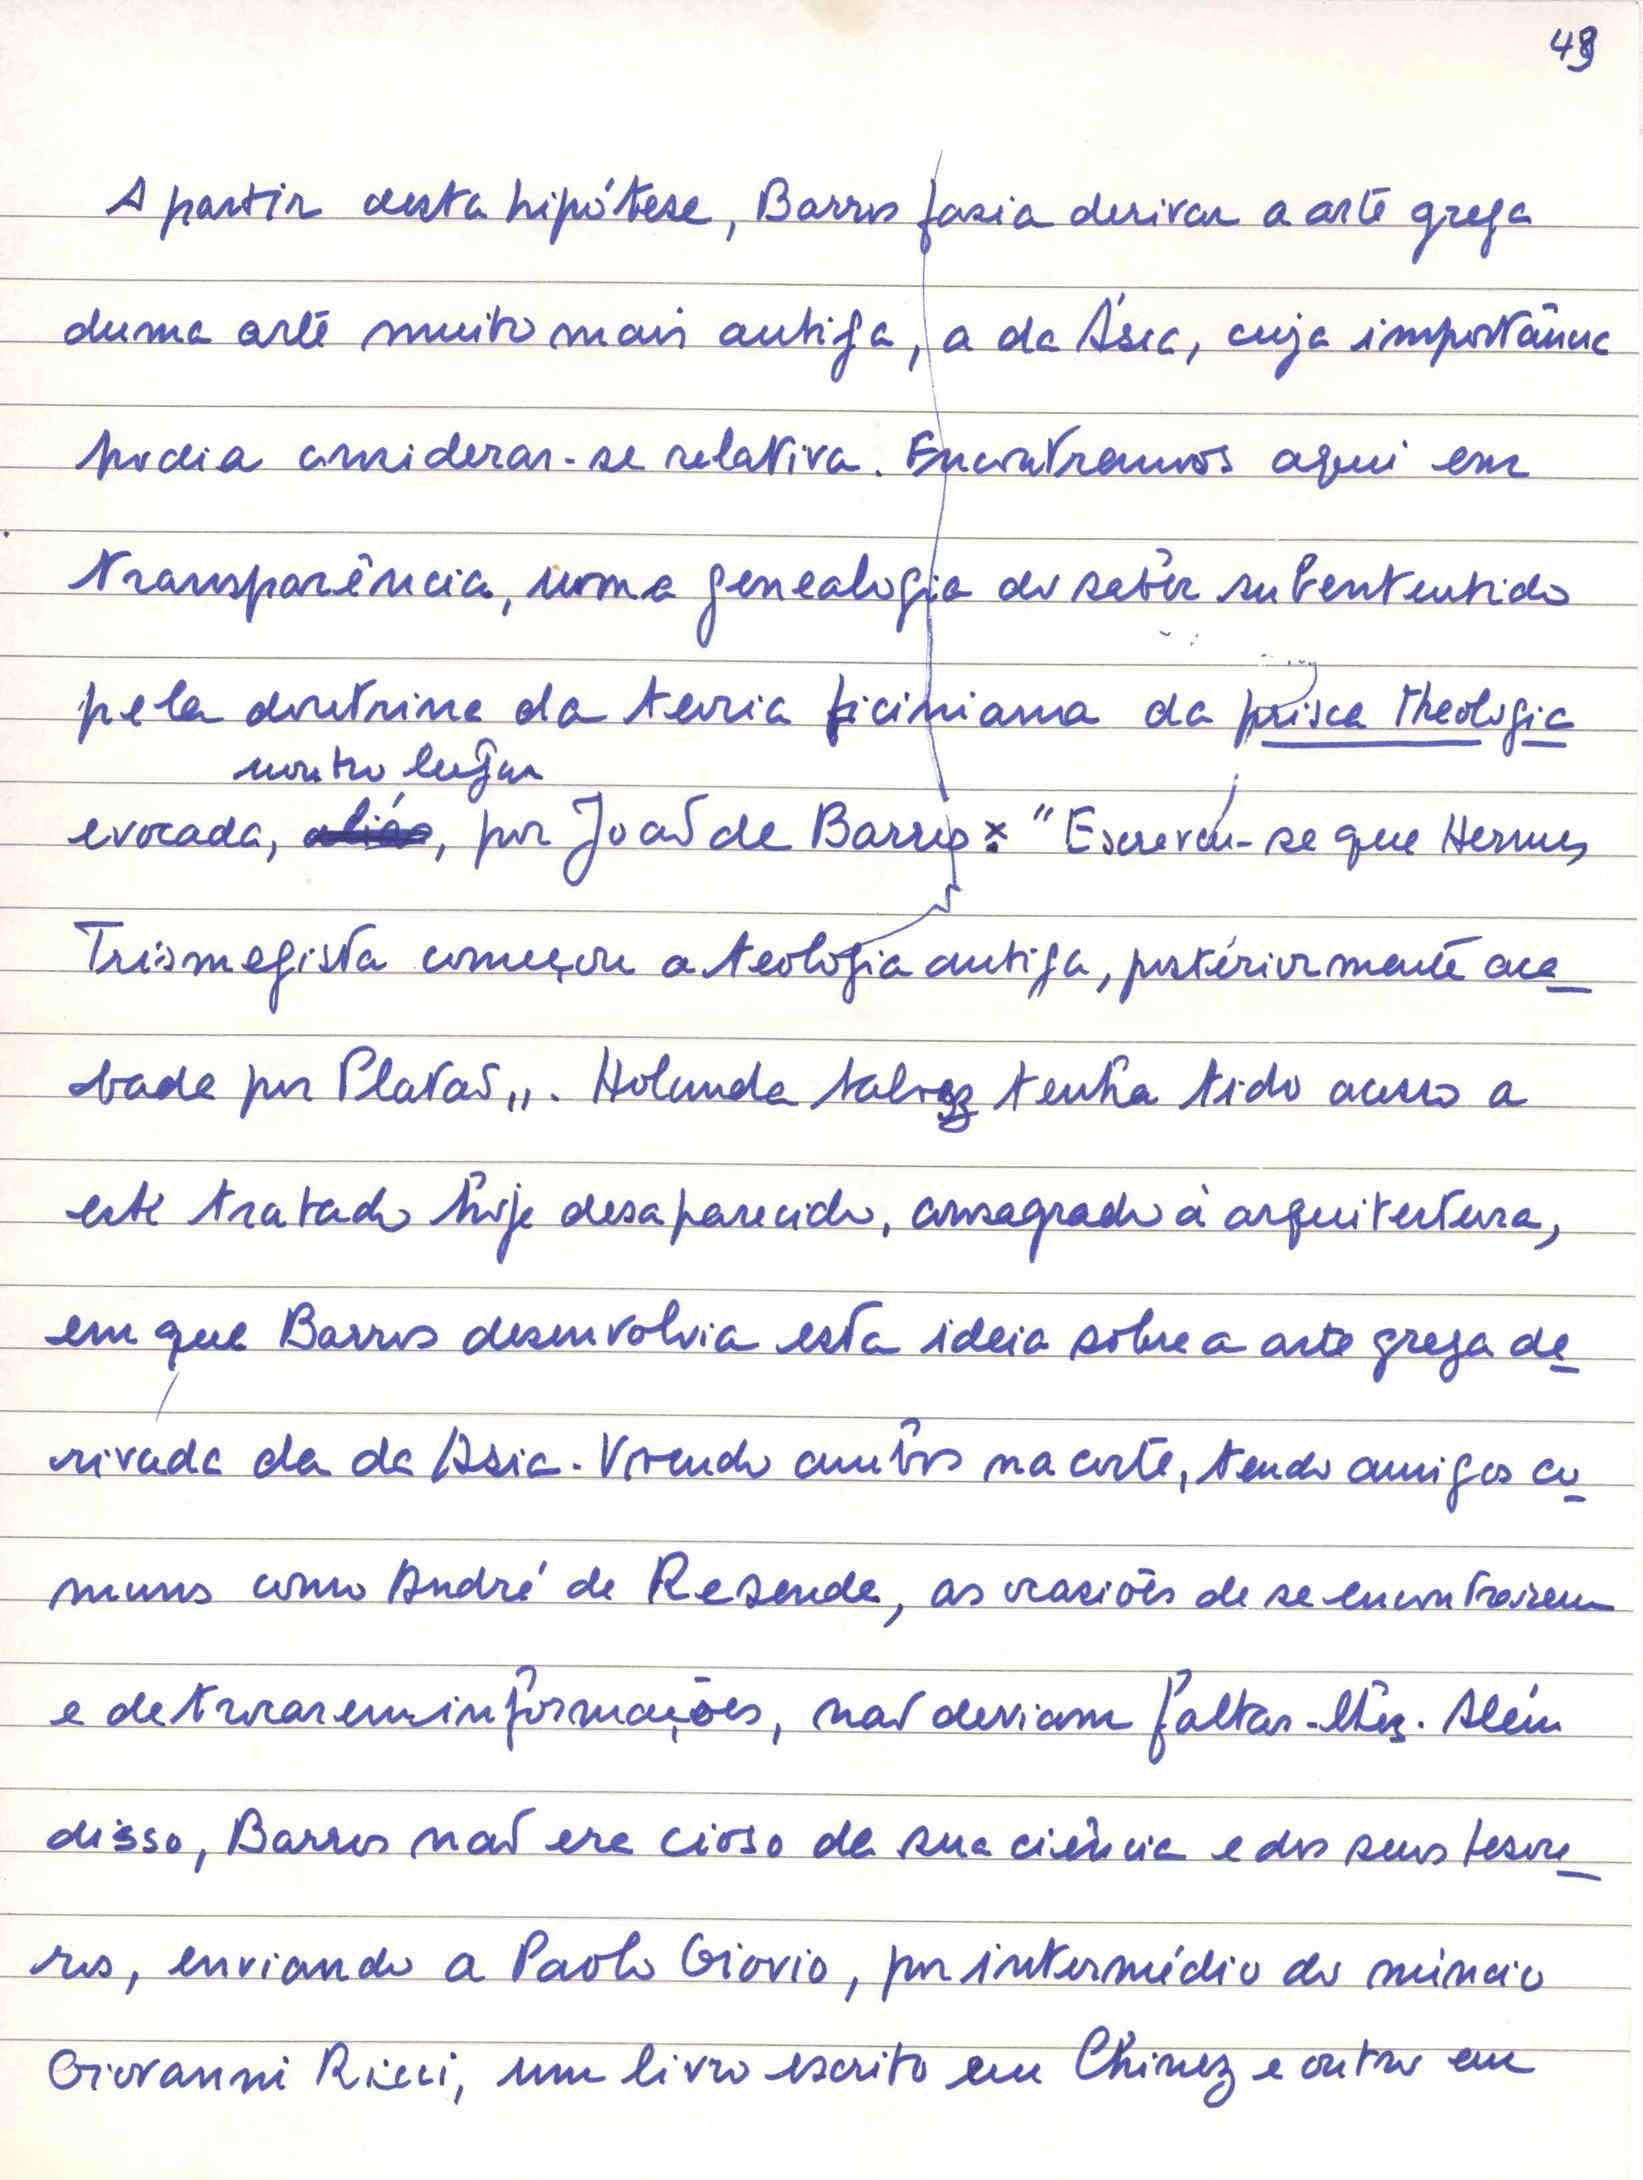 49
A partir desta hipótese, Barros fazia derivar a arte grega
duma arte muito mais antiga, a da Ásia, cuja importância
podia considerar-se relativa. Encontramos aqui em
transparência, uma genealogia do saber subententido
pela doutrina da teoria ficiniana da prisca theologia
noutro lugar
evocada, aliás, por João de Barros: "Escreveu-se que Hermes
Trismegista começou a teologia antiga, posteriormente aca
bada por Platão". Holanda talvez tenha tido acesso a
este tratado hoje desaparecido, consagrado à arquitectura,
em que Barros desenvolvia esta ideia sobre a arte grega de
rivada da da Ásia. Vivendo ambos na corte, tendo amigos co
muns como André de Resende, as ocasiões de se encontrarem
e de trocarem informações, não deviam faltar-lhes. Além
disso, Barros não era cioso da sua ciência e dos seus tesou
ros, enviando a Paolo Giovio, por intermédio do núncio
Giovanni Ricci, um livro escrito em Chinez e outro em